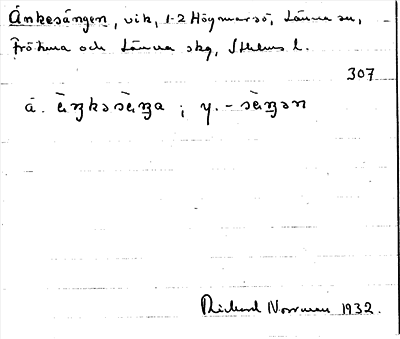 Änkesängen, vik, 1-2 Högmarsö, Länna sn,
Frötuna och Länna skg, Sthlms l.
307
ä. ὲŋkəsὲŋa ; y. -sὲŋən
Richard Norrman 1932.